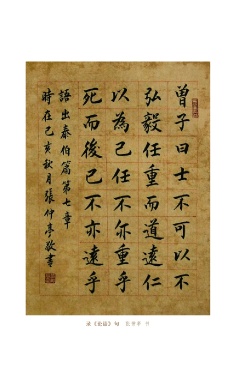 曾子曰士不可以不
弘毅任重而道遠仁
以為己任不亦重乎
死而後已不亦遠乎
語出泰伯篇第七章
時在己亥秋月張仲亭敬書
录《论语》句 张仲亭 书